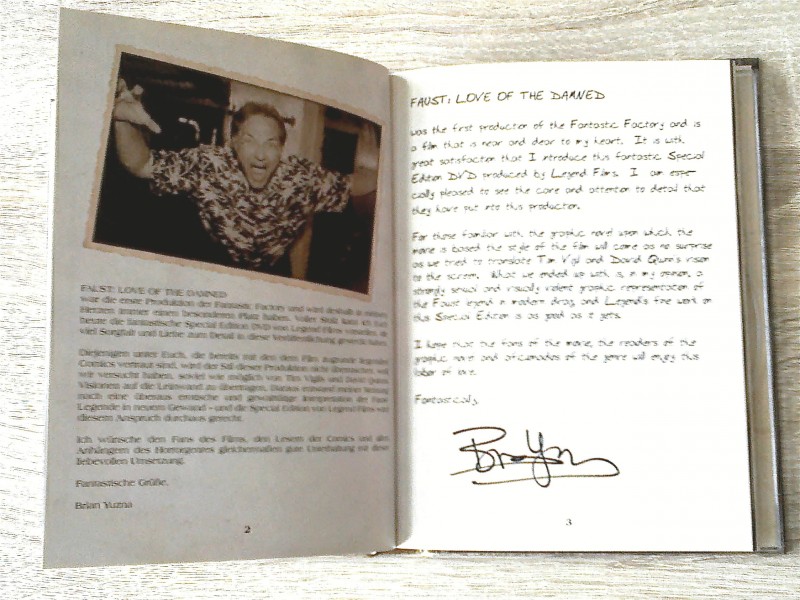 FAUST: LOVE OF THE DAMNED
war die erste Produktion der Fantastic Factory und wird deshalb in meinem
Herzen immer einen besonderen Platz haben. Voller Stolz kann ich Euch
heute die fantastische Special Edition DVD von Legend Films vorstellen, in
viel Sorgfalt und Liebe zum Detail in diese Veröffentlichung gesteckt haben.
Diejenigen unter Euch, die bereits mit den dem Film zugrunde liegenden
Comics vertraut sind, wird der Stil dieser Produktion nicht überraschen, weil
wir versucht haben, soviel wie möglich von Tim Vigils und David Quinns
Visionen auf die Leinwand zu übertragen. Daraus entstand meiner Meinung
nach eine überaus erotische und gewalttätige Interpretation der Faust
Legende in neuem Gewand - und die Special Edition von Legend Films wird
diesem Anspruch durchaus gerecht.
Ich wünsche den Fans des Films, den Lesern der Comics und den
Anhängern des Horrorgenres gleichermaßen gute Unterhaltung mit dieser
liebevollen Umsetzung.
Fantastische Grüße,
Brian Yuzna
2
FAUST: LOVE OF THE DAMNED
was the first production of the Fantastic Factory and is
a film that is near and dear to my heart. It is with
great satisfaction that I introduce this fantastic Special
Edition DVD produced by Legend Films. I am espe-
cially pleased to see the care and attention to detail that
they have put into this production.
For those familiar with the graphic novel upon which the
movie is based the style of the film will come as no surprise
as we tried to translate Tim Vigil and David Quinn's vision
to the screen. What we ended up with is, in my opinion, a
strongly sexual and visually violent graphic representation of
the Faust legend in modern drag, and Legend's fine work on
this Special Edition is as good as it gets.
I hope that the fans of the movie, the readers of the
graphic novel and aficionados of the genre will enjoy this
labor of love.
Fantastically,
3